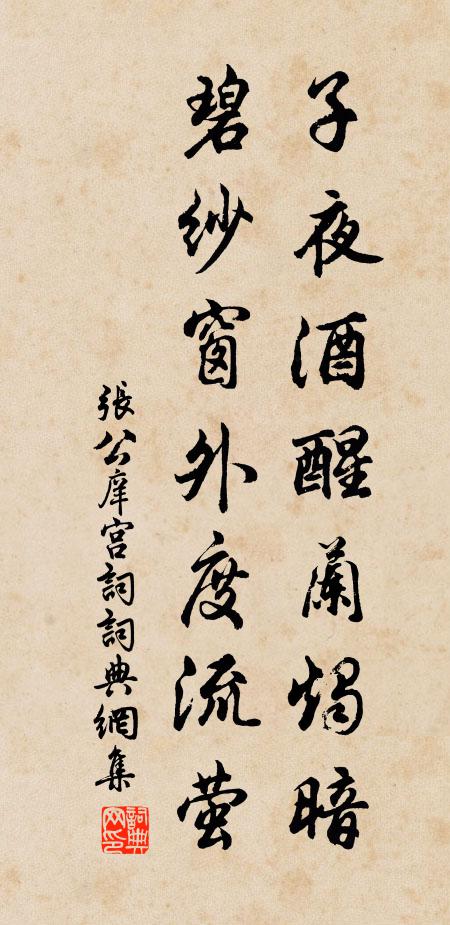 子夜酒醒蘭燭暗
碧紗窗外度流螢
張公庠宮詞詞典網集
詞典網印